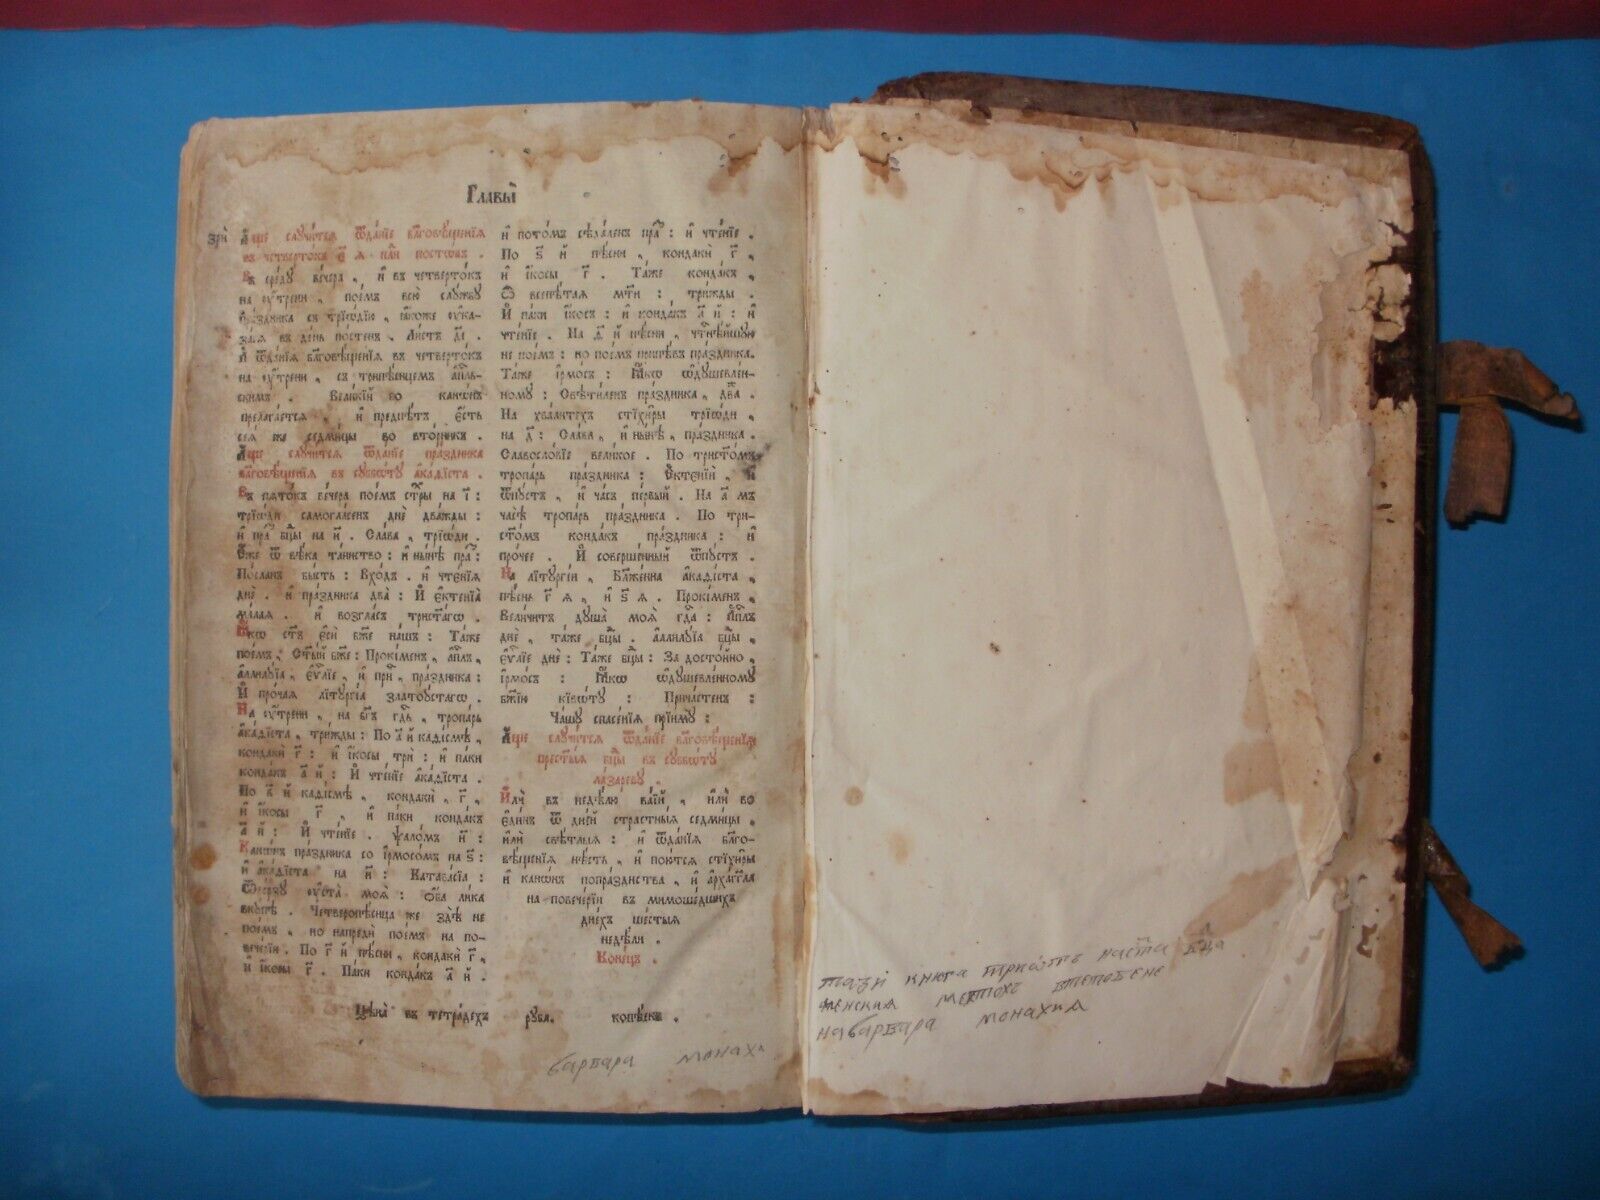 Главы̀
зрѝ
А҆́ще случи́тсѧ ѿда́нїе бл҃говѣ́щенїѧ
въ четверто́къ є҃ѧ нл҃и посто́въ .
Въ сре́ду ве́чера , и҆ въ четверто́къ
на ᲂу҆́трени , пое́мъ всю̀ слꙋ́жбꙋ
пра́здника съ трїѡ́дїю , ꙗ҆́коже ᲂу҆ка-
за́сѧ въ де́нь по́стенъ . Ли́стъ
И҆ ѿда́нїѧ бл҃говѣ́щенїѧ въ четверто́къ
на ᲂу҆́трени , съ трипѣ́снцемъ а҆пⷭ҇ль-
скимъ . Вели́кїй во кано́нъ
прелага́етсѧ , и҆ предпѣ́тъ є҆́сть
сеѧ́ же седми́цы во вто́рникъ .
А҆́ще случи́тсѧ ѿда́нїе пра́здника
бл҃говѣ́щенїѧ въ сꙋббѡ́тꙋ а҆ка́ѳїста .
Въ пѧто́къ ве́чера пое́мъ стⷯры на і҃ :
трїѡ́ди самогла́сенъ днѐ два́жды :
и҆ пра҃ бцⷣы на и҃ . Сла́ва , трїѡ́ди .
Є҆́же ѿ вѣ́ка та́инство : и҆ ны́нѣ пра҃ :
По́сланъ бы́сть : Вхо́дъ . и҆ чтє́нїѧ
днѐ . и҆ пра́здника два̀ : И҆ є҆ктенїа̀
ма́лаѧ . и҆ возгла́съ трист҃а́гѡ .
Ꙗ҆́кѡ ст҃ъ є҆сѝ бж҃е на́шъ : Та́же
пое́мъ , Ст҃ы́й бж҃е : Прокі́менъ , а҆пⷭ҇лъ ,
а҆ллилꙋ́їа , є҆ѵⷢ҇лїе , и҆ при́ч , пра́здника :
И҆ про́чаѧ літꙋргі́а златоꙋ́стагѡ .
На ᲂу҆́трени , на бг҃ъ гдⷭ҇ь , тропа́рь
а҆ка́ѳїста , три́жды : По а҃ й каѳі́смѣ ,
кондакѝ г҃ : и҆ і҆́косы трѝ : и҆ па́ки
конда́къ а҃ й : И҆ чте́нїе а҆ка́ѳїста .
По в҃ й каѳі́смѣ , кондакѝ , г҃ ,
и҆ і҆́косы г҃ , и҆ па́ки конда́къ
а҃ й : И҆ чте́нїе . ѱало́мъ н҃ :
Канѡ́нъ пра́здника со і҆рмосо́мъ на ѕ҃ :
и҆ а҆ка́ѳїста на и҃ : Катава́сїа :
Ѿве́рзꙋ ᲂу҆ста̀ моѧ̑ : Ѻ҆́ба ли́ка
вкꙋ́пѣ . Четверопѣ́снца же здѣ̀ не
пое́мъ , но напредѝ пое́мъ на по-
вече́рїи . По г҃ й пѣ́сни , кондакѝ г҃ ,
и҆ і҆́косы г҃ . Па́ки конда́къ а҃ й .
и҆ пото́мъ сѣда́ленъ пра҃ : и҆ чте́нїе .
По ѕ҃ й пѣ́сни , кондакѝ г҃ ,
и҆ і҆́косы г҃ . Та́же конда́къ ,
Ѽ всепѣ́таѧ мт҃и : три́жды .
И҆ па́ки і҆́косъ : и҆ конда́къ а҃ й : и҆
чте́нїе . На ѳ҃ й пѣ́сни , чтⷭ҇нѣ́йшꙋю
не пое́мъ : но пое́мъ припѣ́въ пра́здника .
Та́же і҆рмо́съ : Ꙗ҆́кѡ ѡ҆дꙋшевле́н-
номꙋ : Свѣти́ленъ пра́здника , два̀ .
На хвали́техъ стїхи̑ры трїѡ́ди ,
на д҃ : Сла́ва , и҆ ны́нѣ , пра́здника .
Славосло́вїе вели́кое . По трист҃о́мъ
тропа́рь пра́здника : Є҆ктенїѝ , и҆
ѿпꙋ́стъ , и҆ ча́съ пе́рвый . На а҃ мъ
часѣ̀ тропа́рь пра́здника . По три-
ст҃о́мъ конда́къ пра́здника : и҆
про́чее . И҆ соверше́нный ѿпꙋ́стъ .
На літꙋргі́и , Бл҃же́нна а҆ка́ѳїста ,
пѣ́снь г҃ ѧ , и҆ ѕ҃ ѧ . Прокі́менъ ,
Вели́читъ дꙋша̀ моѧ̀ гдⷭ҇а : А҆пⷭ҇лъ
днѐ , та́же бцⷣы . а҆ллилꙋ́їа бцⷣы ,
є҆ѵⷢ҇лїе днѐ : Та́же бцⷣы : За досто́йно ,
і҆рмо́съ : Ꙗ҆́кѡ ѡ҆дꙋшевле́нномꙋ
бж҃їю кївѡ́тꙋ : Прича́стенъ :
Ча́шꙋ спасе́нїѧ прїимꙋ̀ :
А҆́ще случи́тсѧ ѿда́нїе бл҃говѣ́щенїѧ
прест҃ы́ѧ бцⷣы въ сꙋббѡ́тꙋ
ла́заревꙋ .
И҆лѝ въ недѣ́лю ва́їй , и҆лѝ во
є҆ди́нъ ѿ дні́й страстны́ѧ седми́цы .
и҆лѝ свѣ́тлыѧ : и҆ ѿда́нїѧ бл҃го-
вѣ́щенїѧ нѣ́сть , и҆ пою́тсѧ стїхи̑ры
и҆ канѡ́нъ попра́зднства , и҆ а҆рха́гг҃ла
на повече́рїи въ мимоше́дшихъ
дне́хъ шесты́ѧ
недѣ́ли .
Коне́цъ .
Цѣна̀ въ тетра́дехъ рꙋбл. копѣ́екъ .
варвара монахи
тази книга триѡтъ наста бца
женския метохъ
наварвара монахиа